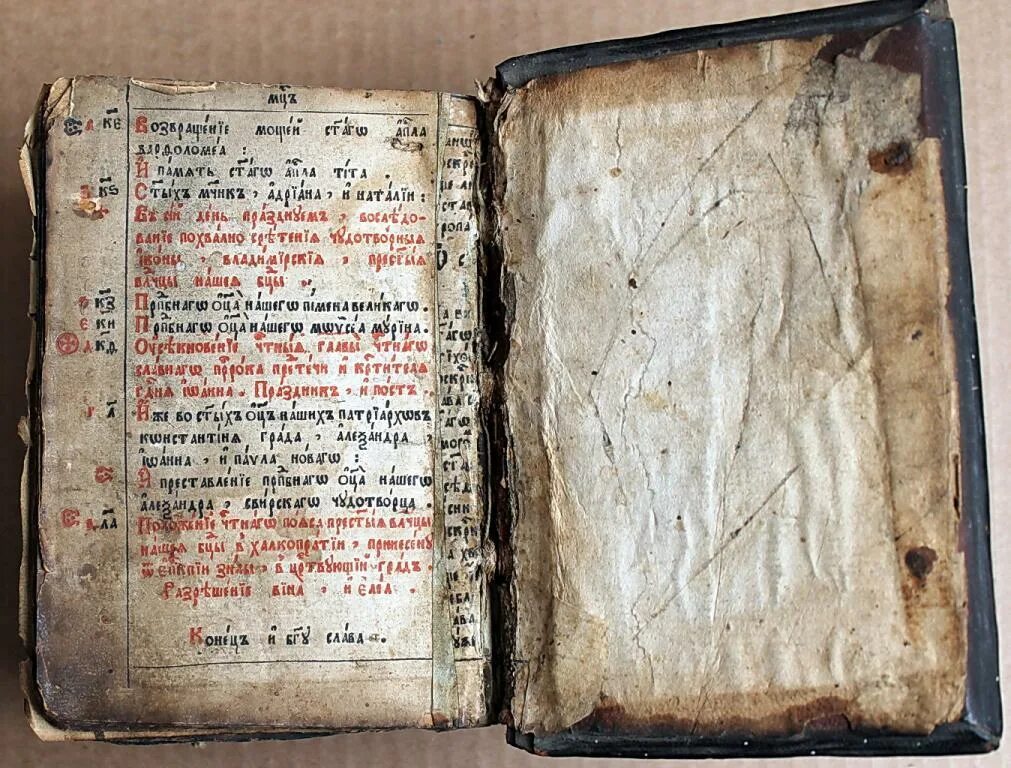 мц҃ъ
к҃е Возвращє́нїе мощє́й ст҃а́гѡ а҆п҃ла
варѳоломе́а :
И҆ па́мѧть ст҃а́гѡ а҆п҃ла ті́та .
к҃ѕ С̑ты́хъ мч҃нкъ , а҆дрїа́на , и҆ ната́лїи :
Въ сі́й де́нь пра́зднуемъ , вослѣ́до-
ванїе похва́лно срѣ́тенїѧ чудотво́рныѧ
і҆ко́ны , влади́мїрскїѧ , прест҃ы́ѧ
влч҃цы на́шеѧ бц҃ы .
к҃з Прп҃бнагѡ ѻ҆ц҃а̀ на́шегѡ пі́мена вели́кагѡ .
к҃и Прп҃бнагѡ ѻ҆ц҃а̀ на́шегѡ мѡѷсе́а мꙋ́рина .
к҃ѳ Оу҆сѣкнове́нїе чт҃ны́ѧ главы̀ чт҃на́гѡ
сла́внагѡ прⷪ҇ро́ка прⷣте́чи и҆ крⷭ҇ти́телѧ
гдⷭ҇нѧ і҆ѡа́нна . Пра́здникъ , и҆ по́стъ .
л҃ И҆́же во ст҃ы́хъ ѻ҆ц҃ъ на́шихъ патрїа́рхѡвъ
кѡнстанті́нѧ гра́да , а҆леѯа́ндра ,
і҆ѡа́нна , и҆ па́ѵла но́вагѡ :
И҆ преставле́нїе прп҃бнагѡ ѻ҆ц҃а̀ на́шегѡ
а҆леѯа́ндра , сви́рскагѡ чудотво́рца .
л҃а Положе́нїе чт҃на́гѡ по́ѧса прест҃ы́ѧ влч҃цы
на́шеѧ бц҃ы в халкопра́тїи , принесе́ну
ѿ є҆пи́скпїи зи́лы , в црⷭ҇твующїй гра́дъ .
Разрѣше́нїе вїна̀ , и҆ є҆ле́а .
Коне́цъ и҆ бг҃ꙋ сла́ва .